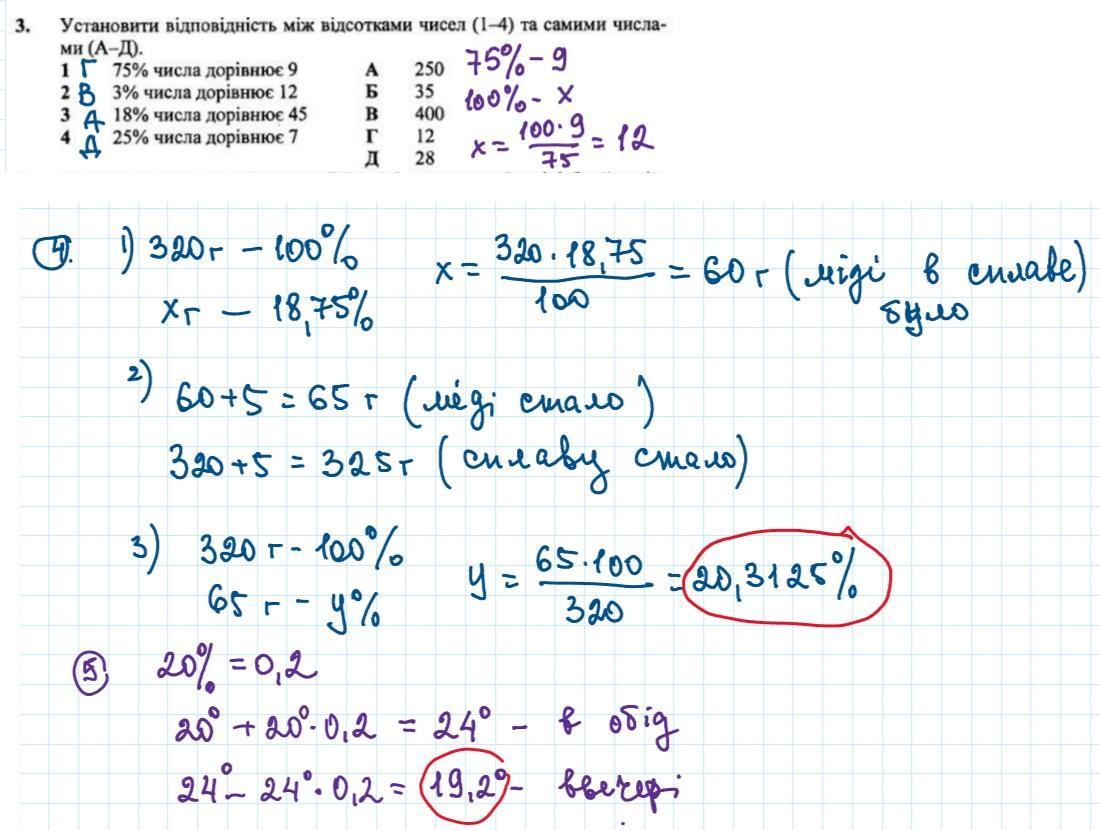 3. Установити відповідність між відсотками чисел (1–4) та самими числа-
ми (А–Д).
1 Г 75% числа дорівнює 9 А 250
2 В 3% числа дорівнює 12 Б 35
3 А 18% числа дорівнює 45 В 400
4 Д 25% числа дорівнює 7 Г 12
Д 28
75% – 9
100% – x
x = 100·9/75 = 12
4. 1) 320г – 100%
xг – 18,75%
x = 320·18,75/100 = 60 г (міді в сплаве)
було
2) 60+5 = 65 г (міді стало)
320+5 = 325г (сплаву стало)
3) 320 г – 100%
65 г – y%
y = 65·100/320 = 20,3125%
5 20% = 0,2
20° + 20°·0,2 = 24° – в обід
24° – 24°·0,2 = 19,2° – ввечері